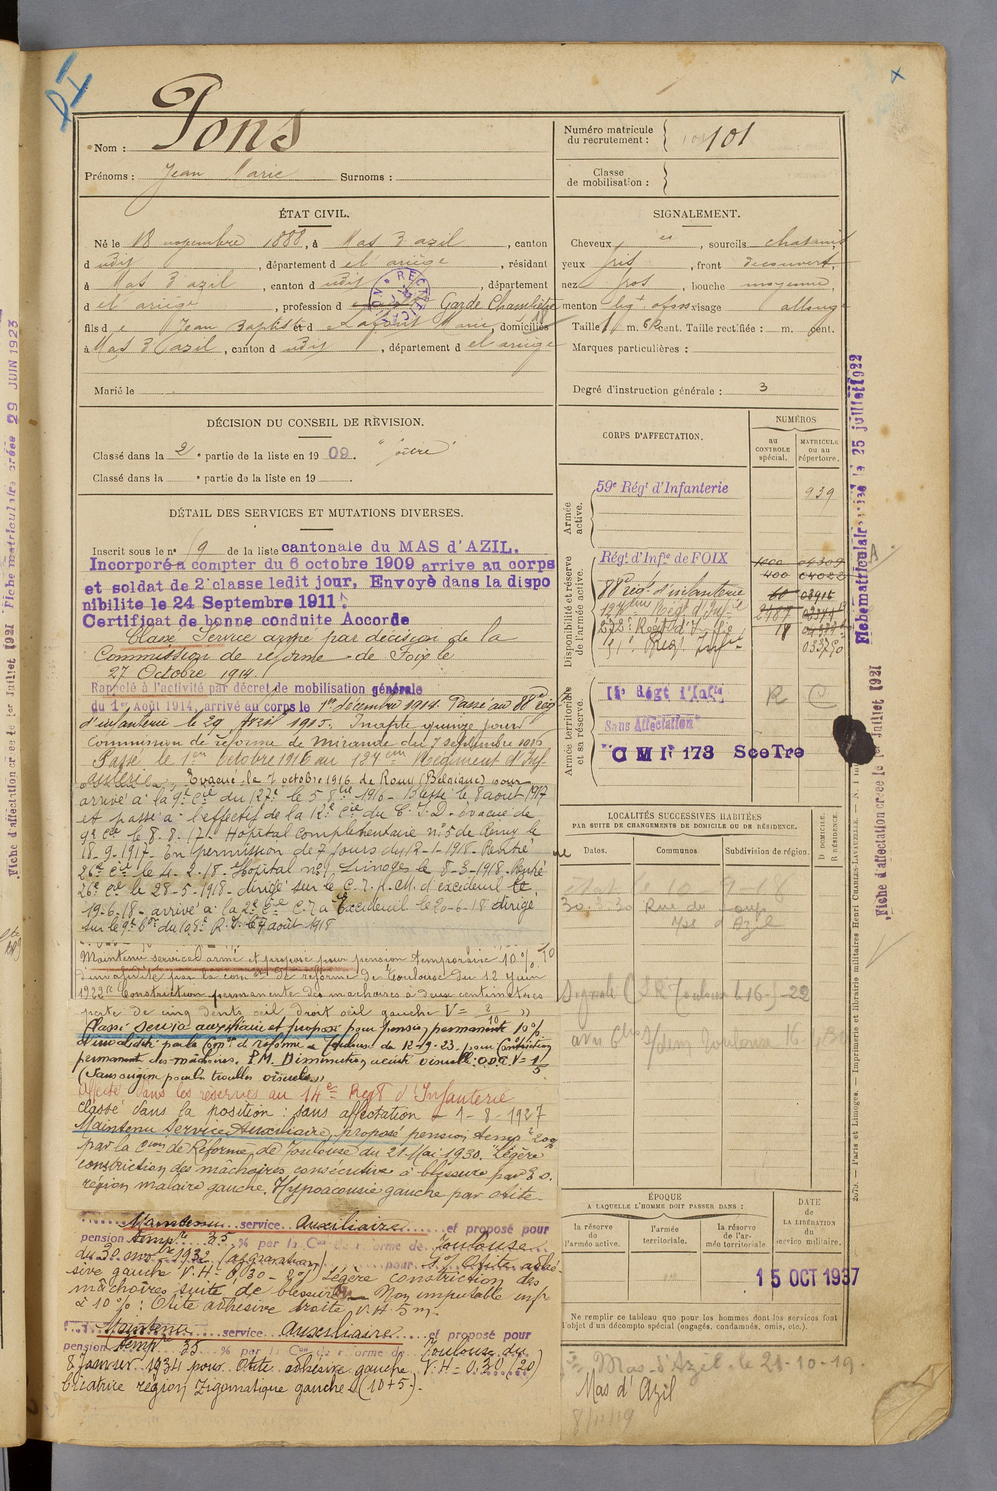 PI
Nom : Pons
Prénoms : Jean Marie Surnoms :
Numéro matricule du recrutement : 101
Classe de mobilisation :
ÉTAT CIVIL.
Né le 18 novembre 1888, à Mas d'azil, canton
d udit, département d el ariège, résidant
à Mas d'azil, canton d udit, département
d el ariège, profession d Garde Chambêtre
fils d e Jean Baptiste et d Lafont Marie, domiciliés
à Mas d'azil, canton d udit, département d el ariège
Marié le
SIGNALEMENT.
Cheveux, sourcils chatains
yeux gris, front découvert,
nez gros, bouche moyenne,
menton visage allongé
Taille 1 m. 62 cent. Taille rectifiée : m. cent.
Marques particulières :
Degré d'instruction générale : 3
DÉCISION DU CONSEIL DE RÉVISION.
Classé dans la 2e partie de la liste en 1909.
Classé dans la e partie de la liste en 19
DÉTAIL DES SERVICES ET MUTATIONS DIVERSES.
Inscrit sous le n° 9 de la liste cantonale du MAS d'AZIL.
Incorporé a compter du 6 octobre 1909 arrive au corps
et soldat de 2e classe ledit jour, Envoyé dans la dispo
nibilite le 24 Septembre 1911.
Certificat de bonne conduite Accordé
Classé Service armé par décision de la
Commission de réforme de Foix le
27 Octobre 1914.
Rappelé à l'activité par décret de mobilisation générale
du 1er Août 1914, arrivé au corps le 1er décembre 1914. Passé au 88e rég
d'infanterie le 29 Avril 1915. Inapte quinze jours
Commission de réforme de Mirande du 7 septembre 1915
Passé le 1er Octobre 1916 au 127ème Régiment d'Inf
anterie, Evacué le 7 octobre 1916 de Rouy (Belgique) pour
arrivé à la 9e Cie du 127e le 5 8bre 1916 - Blessé le 8 aout 1917
et passé à l'effectif de la 12e Cie du C.I.D. évacué de
9e Cie le 8.8.17. Hopital complémentaire n°5 de Rémy le
18-9-1917. En permission de 7 jours du 12-1-1918. Rentré
26e Cie le 4-2-18. Hopital n°1 Limoges le 8-3-1918. Rentré
26e Cie le 28-5-1918. dirigé sur le C.I.A.M. d'exceideuil le
19-6-18. arrivé à la 2e Cie C.I.a Exceideuil le 20-6-18 dirigé
sur le R.I. le 7 août 1918
Maintenu service armé et proposé pour pension temporaire 10%
d'invalidité par la com° de réforme de Toulouse du 12 juin
1922 "Constriction permanente des machoires à deux centimètres
perte de cinq dents oeil droit oeil gauche V=
Classé service auxiliaire et proposé pour pension permanente 10%
d'invalidité par la Comon de réforme de Toulouse du 12-9-23. pour Constriction
permanente des mâchoires. P.M. Diminution acuité visuelle. O.D.G. V = 1/5
(Sans origine pour les troubles visuels)
Affecté dans les réserves au 14e Regt d'Infanterie
classé dans la position : sans affectation 1-8-1927
Maintenu Service Auxiliaire, proposé pension temp. 20%
par la Cion de Réforme de Toulouse du 21 Mai 1930. "Légère
constriction des mâchoires consécutive à blessure par E.O.
région malaire gauche. Hypoacousie gauche par otite.
Maintenu service Auxiliaire et proposé pour
pension temp. 35 % par la Con de réforme de Toulouse
du 30 nov 1932 (aggravation) pour : 1° Otite adhé-
sive gauche V.H = 0,30 - 2°) Légère constriction des
mâchoires suite de blessure. Non imputable inf
à 10% : Otite adhésive droite, V.H 5 m.
Maintenu service Auxiliaire et proposé pour
pension temp 35 % par la Con de réforme de Toulouse du
8 Janvier 1934 pour Otite adhésive gauche, V.H = 0.30 (20)
Cicatrice région Zigomatique gauche (10+5).
CORPS D'AFFECTATION.
NUMÉROS
au CONTROLE spécial.
MATRICULE ou au répertoire.
Armée active.
59e Régt d'Infanterie 939
Disponibilité et réserve de l'armée active.
Régt d'Infie de FOIX
88e régt d'infanterie
Armée territoriale et sa réserve.
14e Régt d'Infie R C
Sans Affectation
CM Ir 173 SceTre
LOCALITÉS SUCCESSIVES HABITÉES
PAR SUITE DE CHANGEMENTS DE DOMICILE OU DE RÉSIDENCE.
Dates. Communes Subdivision de région. D DOMICILE. R RÉSIDENCE.
30.3.30 Rue du
Mas d'Azil
ÉPOQUE
A LAQUELLE L'HOMME DOIT PASSER DANS :
la réserve de l'armée active.
l'armée territoriale.
la réserve de l'armée territoriale
DATE de LA LIBÉRATION du service militaire.
15 OCT 1937
Ne remplir ce tableau que pour les hommes dont les services font
l'objet d'un décompte spécial (engagés, condamnés, omis, etc.).
Mas-d'Azil le 21-10-19.
Mas d'Azil
8/11/19
Fiche matriculaire créée le 25 juillet 1922
Fiche d'affectation créée le 1er Juillet 1921
Paris et Limoges. — Imprimerie et librairie militaires Henri CHARLES-LAVAUZELLE.
Fiche matriculaire créée 29 JUIN 1923
Fiche d'affectation créée le 1er Juillet 1921